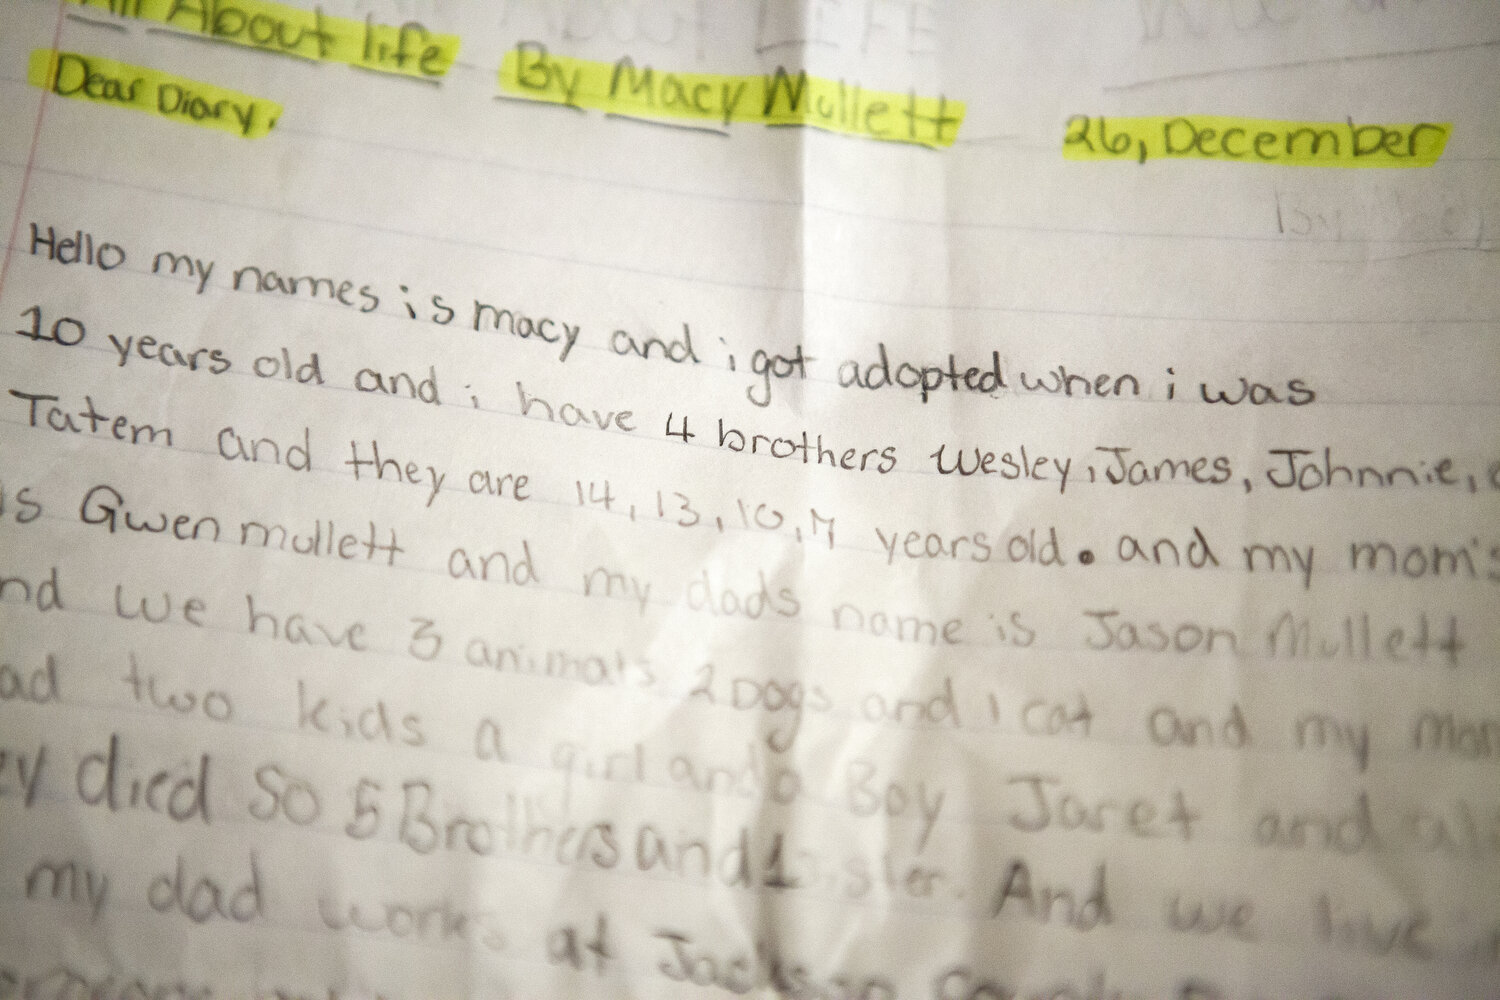 All About life By Macy Mullett 26, December
Dear Diary,
Hello my names is macy and i got adopted when i was
10 years old and i have 4 brothers Wesley, James, Johnnie,
Tatem and they are 14, 13, 10, 7 years old. and my mom's
is Gwen mullett and my dads name is Jason Mullett
and we have 3 animals 2 Dogs and 1 cat and my mom
had two kids a girl and a Boy Jaret and
they died so 5 Brothers and 1 sister. And we live
my dad works at Jackson